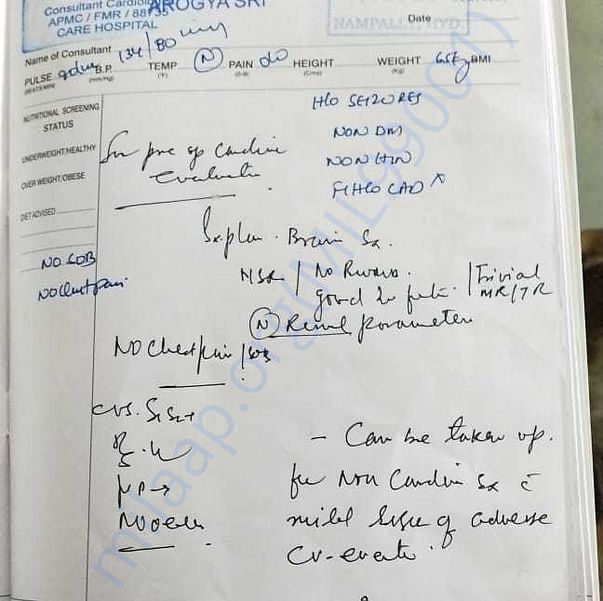 Consultant Cardiolo
AROGYA SRI
APMC / FMR / 88735
CARE HOSPITAL
NAMPALLY, HYD.
Date
Name of Consultant
PULSE B.P. 134/80 TEMP (N) PAIN HEIGHT WEIGHT BMI
NUTRITIONAL SCREENING
STATUS
UNDERWEIGHT/HEALTHY
OVER WEIGHT/OBESE
DIET ADVISED
H/O SEIZURES
NON DM
NON HTN
F/H/O CAD x
for pre op cardiac
evaluation
NO SOB
NO chest pain
Sx plan. Brain Sx.
NSR / No Rwma.
good LV / Trivial
MR/TR
(N) Renal parameters
NO Chest pain / SOB
CVS. S1S2+
- Can be taken up.
for Non Cardiac Sx c̄
mild risk of adverse
CV-events.
milaap.org(MIL990017)